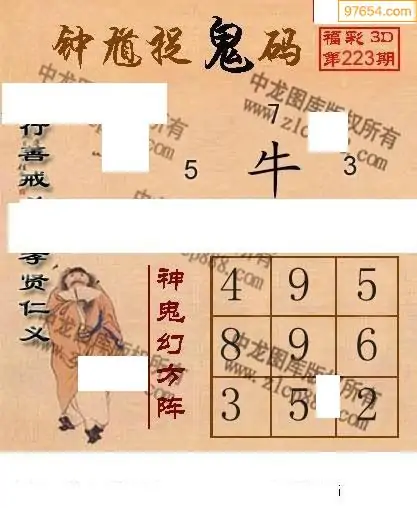 97654.com
钟馗捉鬼码
福彩3D
第223期
中龙图库版权所有
7
行善戒
5
牛
3
孝贤仁义
神鬼幻方阵
4 9 5
8 9 6
3 5 2
中龙图库版权所有
i